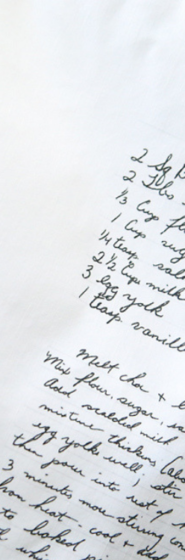 2 Sq
2 Tbs
1/3 Cup fl
1 Cup sug
1/4 teasp sal
2 1/2 Cups milk
3 egg yolk
1 teasp vanill
Melt choc +
Mix flour, sugar,
Add scalded milk
mixture thickens
egg yolks well, stir
then pour into rest of
3 minutes more stirring con
from heat - cool + add
to baked pi